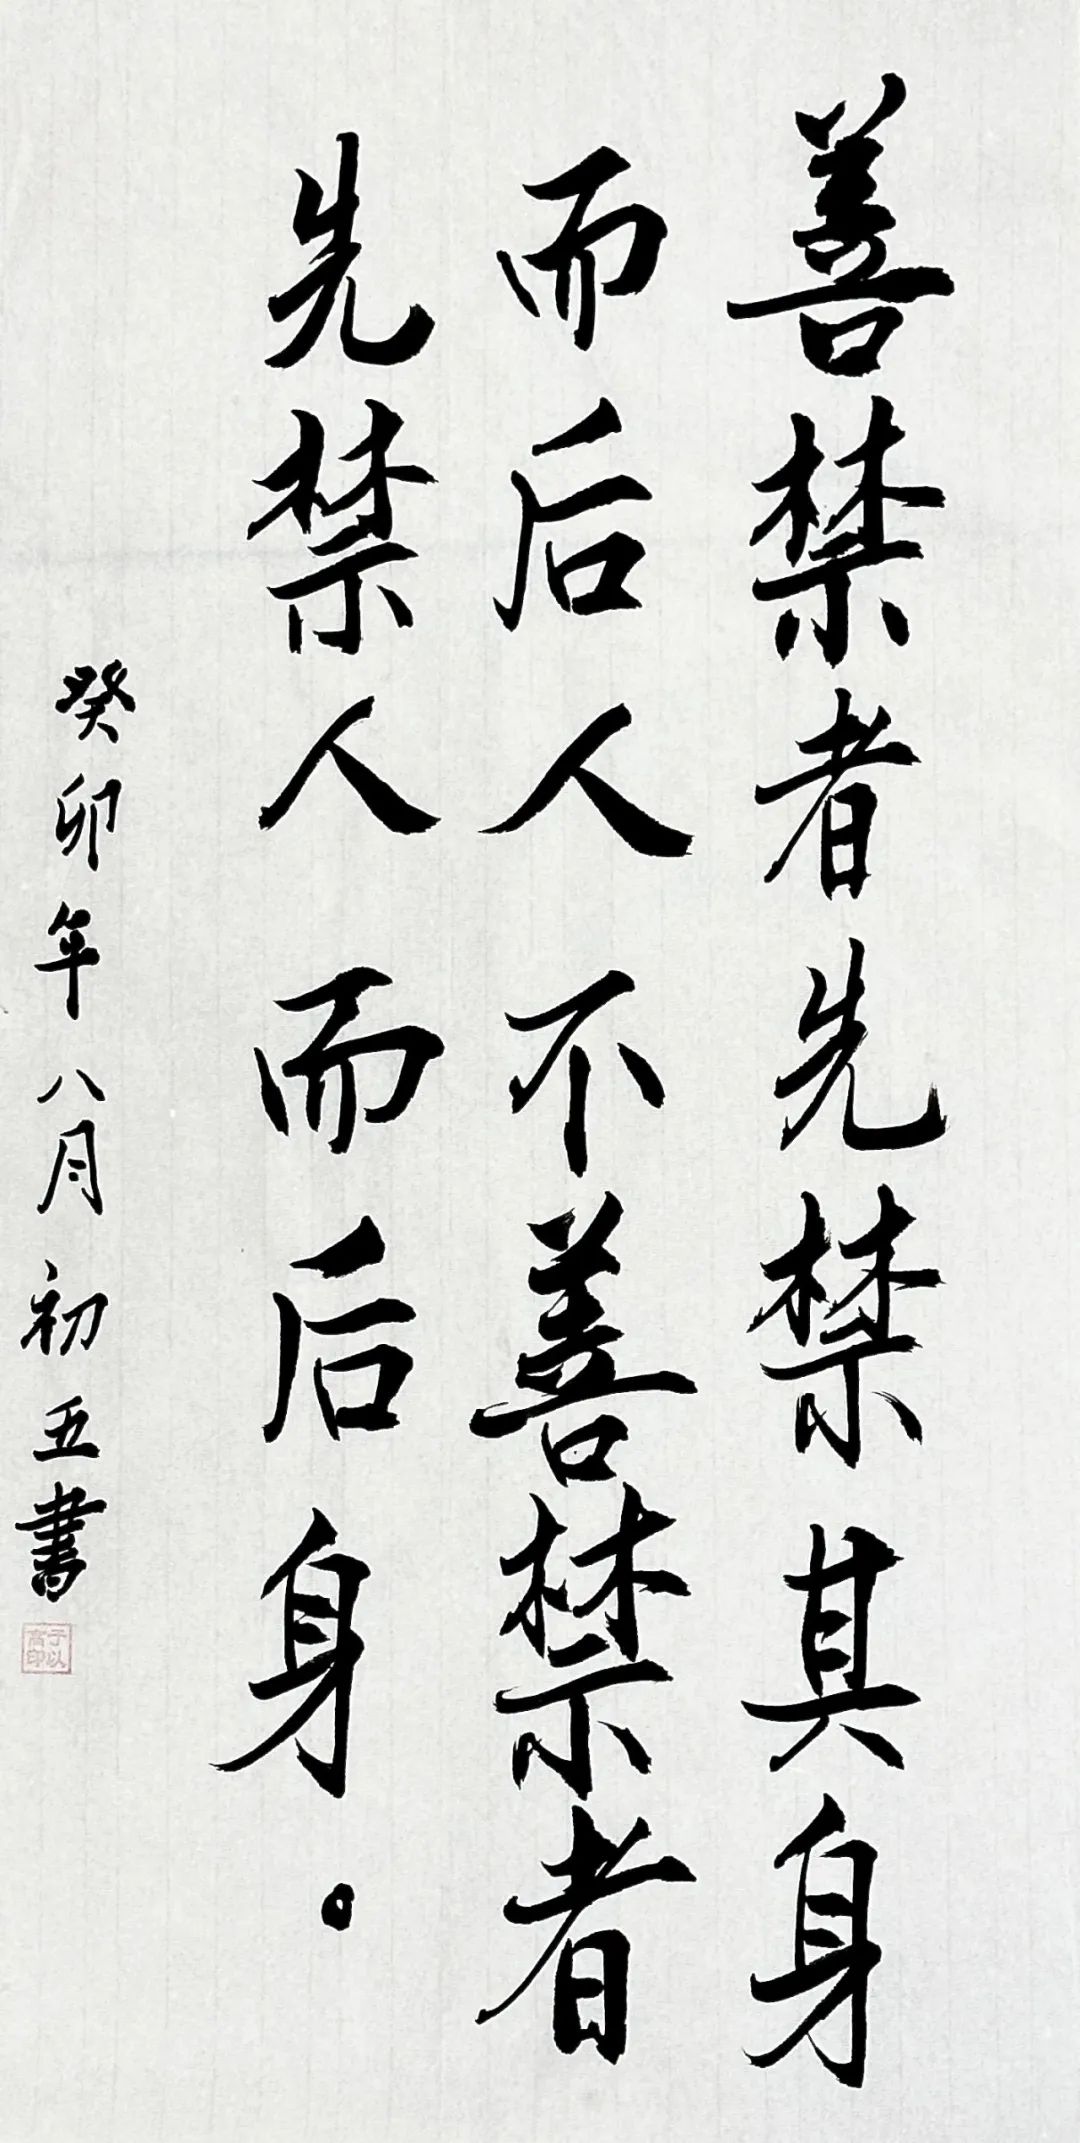 善禁者先禁其身
而后人不善禁者
先禁人而后身。
癸卯年八月初五書
于以
高印